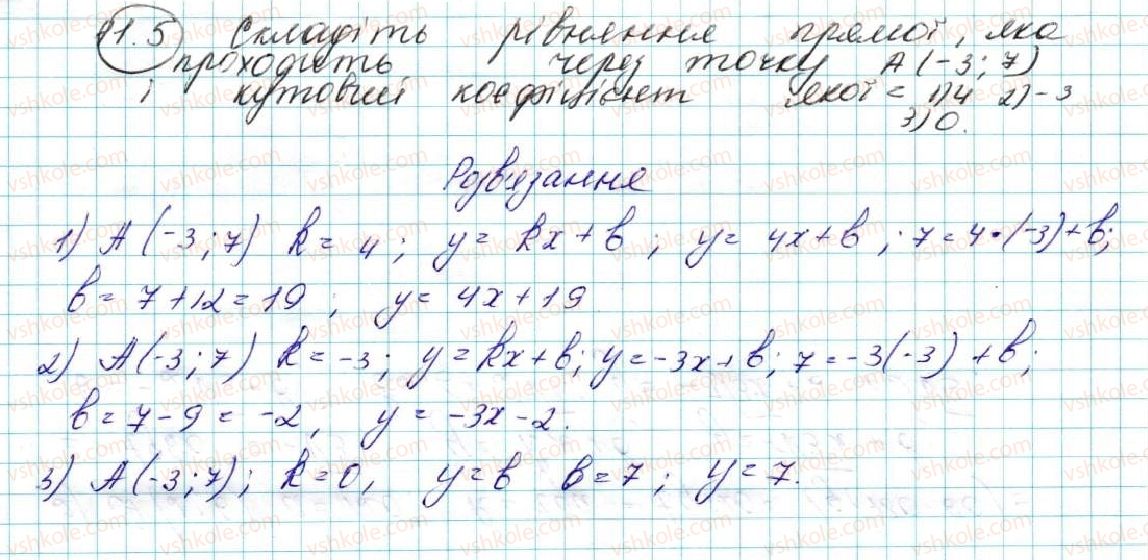 11.5 Складіть рівняння прямої, яка
проходить через точку A(-3; 7)
і кутовий коефіцієнт якої = 1)4 2)-3
3)0.
Розв'язання
1) A(-3; 7) k = 4; y = kx + b; y = 4x + b; 7 = 4·(-3) + b;
b = 7 + 12 = 19; y = 4x + 19
2) A(-3; 7) k = -3; y = kx + b; y = -3x + b; 7 = -3(-3) + b;
b = 7 - 9 = -2, y = -3x - 2.
3) A(-3; 7); k = 0, y = b b = 7; y = 7.